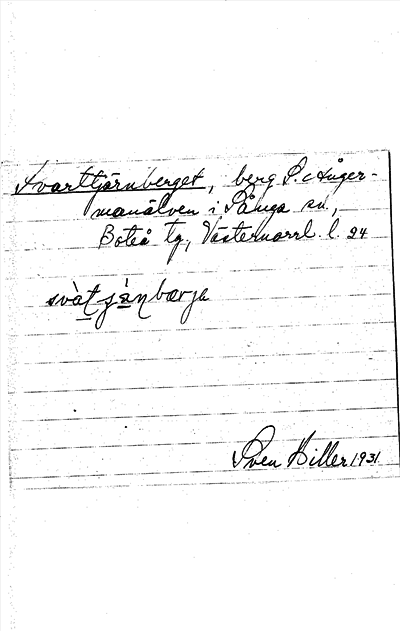 Svarttjärnberget, berg S. Ånger-
manälven i Sånga sn,
Boteå tg, Västernorrl. l. 24
svàt sj̀änbærje
Sven Hiller 1931